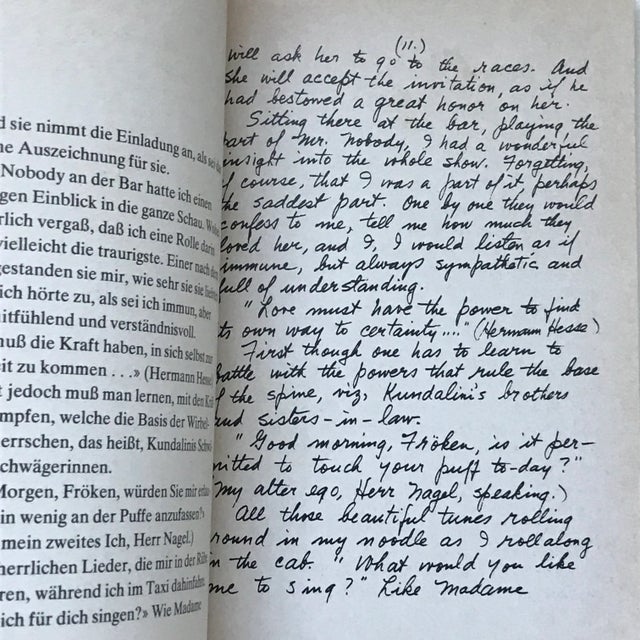 d sie nimmt die Einladung an, als sei
ne Auszeichnung für sie.
Nobody an der Bar hatte ich einen
gen Einblick in die ganze Schau.
rlich vergaß, daß ich eine Rolle darin
vielleicht die traurigste. Einer nach dem
gestanden sie mir, wie sehr sie sie
ich hörte zu, als sei ich immun, aber
nitfühlend und verständnisvoll.
nuß die Kraft haben, in sich selbst zur
eit zu kommen ...» (Hermann Hesse
t jedoch muß man lernen, mit den
mpfen, welche die Basis der Wirbel-
errschen, das heißt, Kundalinis
chwägerinnen.
Morgen, Fröken, würden Sie mir
in wenig an der Puffe anzufassen?»
mein zweites Ich, Herr Nagel.)
herrlichen Lieder, die mir in der
ren, während ich im Taxi dahinfahre.
ich für dich singen?» Wie Madame
(11.)
will ask her to go to the races. And
she will accept the invitation, as if he
had bestowed a great honor on her.
Sitting there at the bar, playing the
part of Mr. Nobody, I had a wonderful
insight into the whole show. Forgetting,
f course, that I was a part of it, perhaps
the saddest part. One by one they would
confess to me, tell me how much they
loved her, and I, I would listen as if
immune, but always sympathetic and
full of understanding.
"Love must have the power to find
ts own way to certainty...." (Hermann Hesse)
First though one has to learn to
battle with the powers that rule the base
f the spine, viz, Kundalini's brothers
and sisters-in-law.
"Good morning, Fröken, is it per-
mitted to touch your puff to-day?"
(my alter ego, Herr Nagel, speaking.)
All those beautiful tunes rolling
round in my noodle as I roll along
in the cab. "What would you like
me to sing?" Like Madame